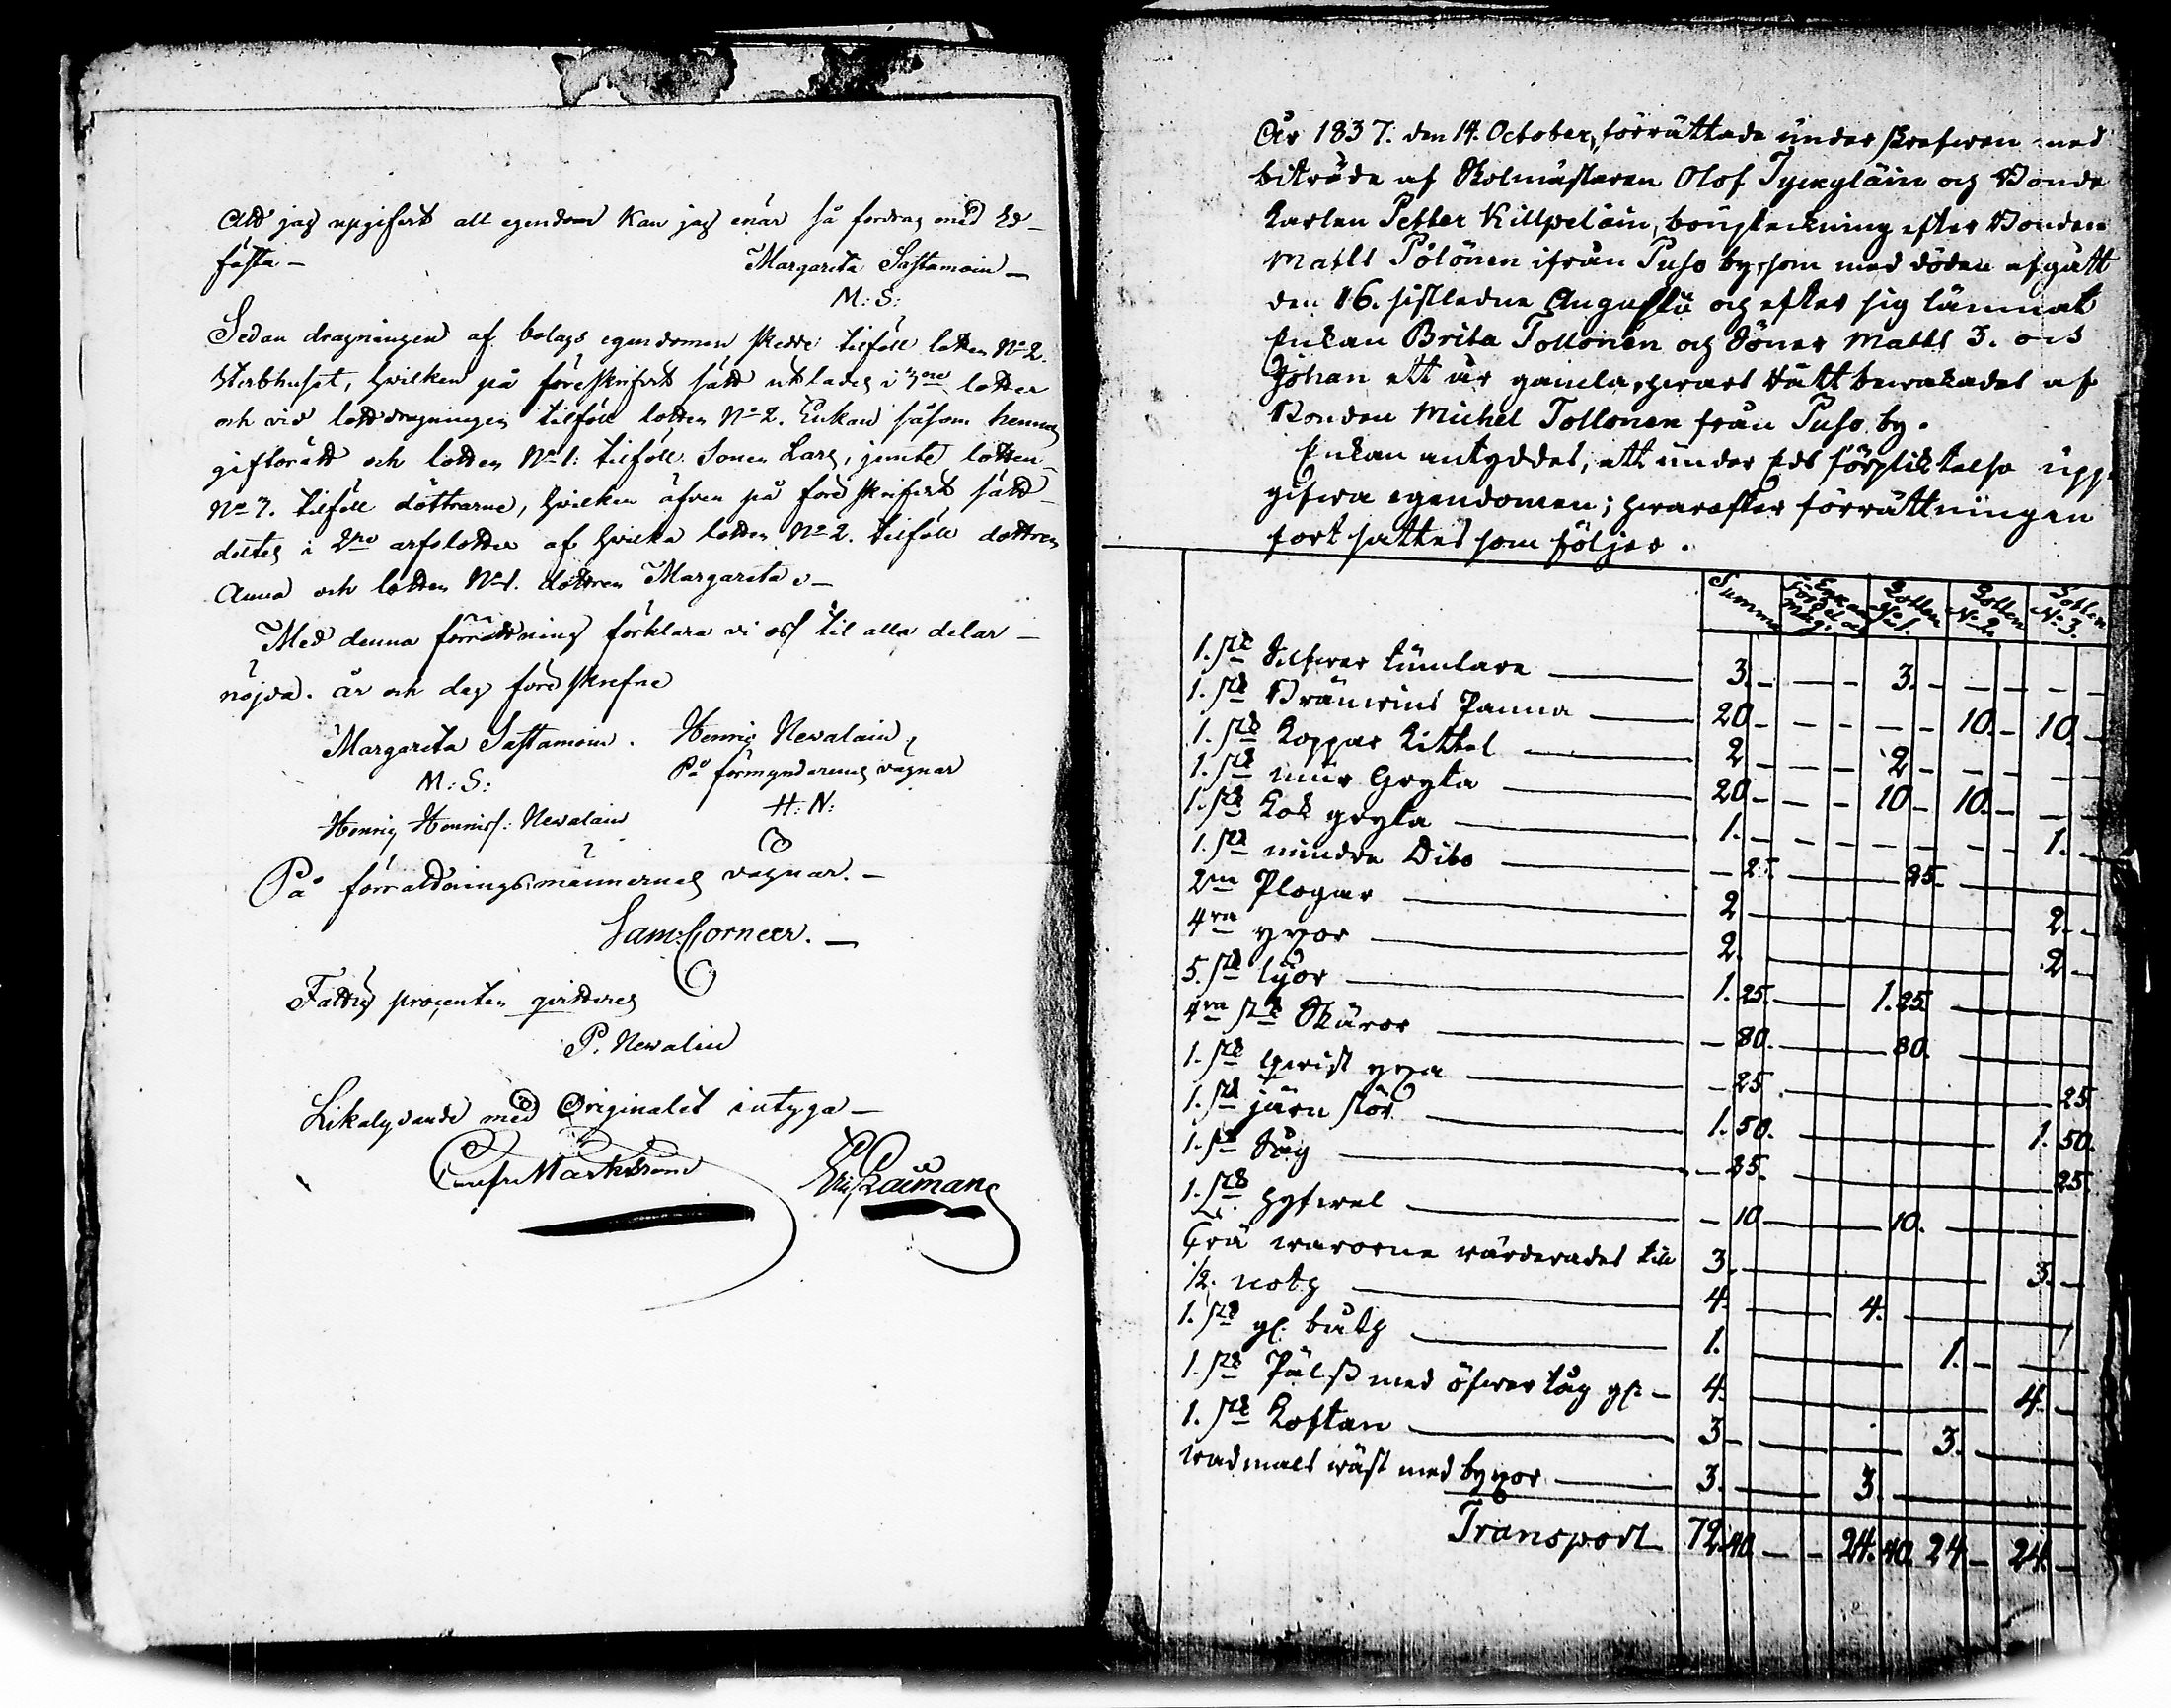 Att jag upgifvit all egendom kan jag enär så fordras med Ed
fästa —
Margareta Sastamoin —
M: S:
Sedan dragningen af bolags egendomen skedde tilföll lotten No 2.
Sterbhuset, hvilken på föreskrifvit sätt utlades i 3ne lotter
och vid lottdragningen tilföll lotten No 2. Enkan såsom hennes
giftorätt och lotten No 1: tilföll Sonen Lars, jemte lotten
No 3. tilföll döttrarne, hvilken äfven på föreskrifvit sätt
deltes i 2ne arfslotter af hvilka lotten No 2. tilföll dottren
Anna och lotten No 1. dottren Margareta. —
Med denna förrättning förklara vi oss til alla delar —
nöjda. år och dag föreskrefne
Margareta Sastamoin. Henric Nevalain,
M: S: På förmyndarenes vägnar
Henric Henrics: Nevalain H: N:
På förrättningsmännernes vägnar. —
Sam: Corneer. —
Fattig procenten qvitteres
P. Nevalin
Likalydande med Originalet intyga —
Markström Eric Raiman
År 1837. den 14. October, förrättade under skrefwen med
biträde af Skolmästaren Olof Tyckyläin og Bonde
Karlen Petter Killpeläin, bouptekning efter Bonden
Matts Pölönen ifrån Puso by, som med döden afgått
den 16. sistledne Augusti og efter sig lämnat
Enkan Brita Tollonen og Söner Matts 3. ock
Johan ett år gamla, hwars Rätt bewakades af
Bonden Michel Tollonen från Puso by.
Enkan antyddes, att under Eds förpliktelse upp
gifwa egendomen; hwarefter förrättningen
fort sattes som följer.
Summa Enkans Fördel af Lotten No 1. Lotten No 2. Lotten No 3.
1. stk Silfwer tumlare — 3. — — — 3. — — — — —
1. stk Bränwins Panna — 20 — — — — — 10. — 10. —
1. stk Koppar kittel — 2 — — — 2 — — — — —
1. stk mur Gryta — 20 — — — 10 — 10. — — —
1. stk Kok gryta — 1. — — — — — — — 1. —
1. stk mindre Dito — — 25. — 25. —
2ne Plogar — 2 — 2. —
4ra yxor — 2. — 2 —
5. stk lijor — 1. 25. — 1. 25. —
4ra stk Skäror — — 80. — 80. —
1. stk qwist yxa — — 25. — 25.
1. stk järn stör — 1. 50. — 1. 50.
1. stk Såg — — 25. — 25.
1. stk hyfwel — — 10 — 10. —
Trä warorne wärderades till 3. — 3. —
1/2. notg — 4. — 4. —
1. stk gl. båtg — 1. — 1. —
1. stk Päls med öfwer tåg gl — 4. — 4. —
1. stk Koftan — 3 — 3. —
wadmals wäst med byxor — 3. — 3. —
Transport 72. 40. — — 24. 40. 24 — 24. —